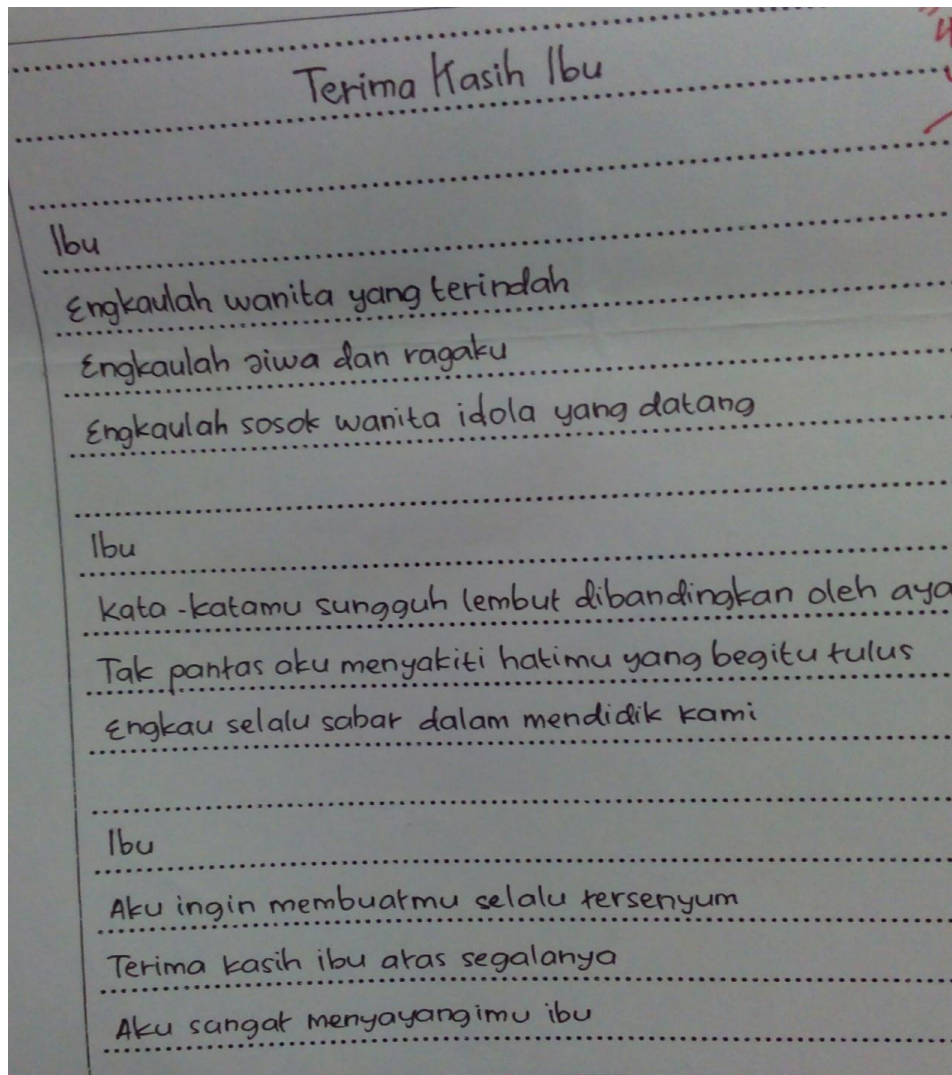 Terima Kasih Ibu
Ibu
Engkaulah wanita yang terindah
Engkaulah jiwa dan ragaku
Engkaulah sosok wanita idola yang datang
Ibu
Kata-katamu sungguh lembut dibandingkan oleh aya
Tak pantas aku menyakiti hatimu yang begitu tulus
Engkau selalu sabar dalam mendidik kami
Ibu
Aku ingin membuatmu selalu tersenyum
Terima kasih ibu atas segalanya
Aku sangat menyayangimu ibu